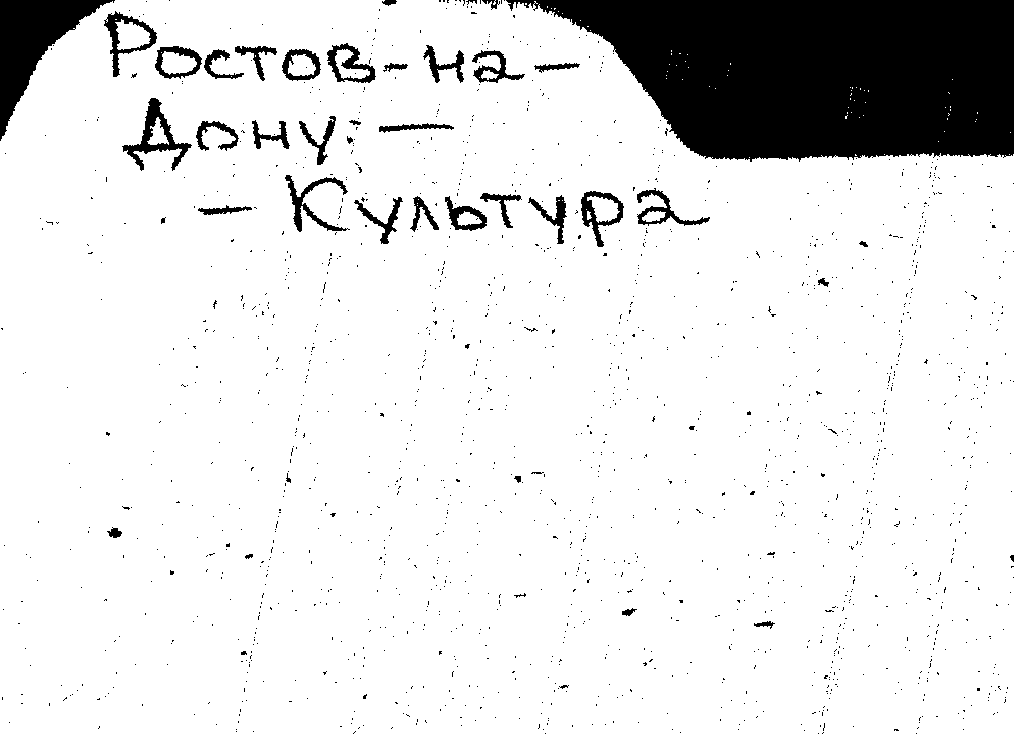 Ростов-на-
Дону. —
- Культура